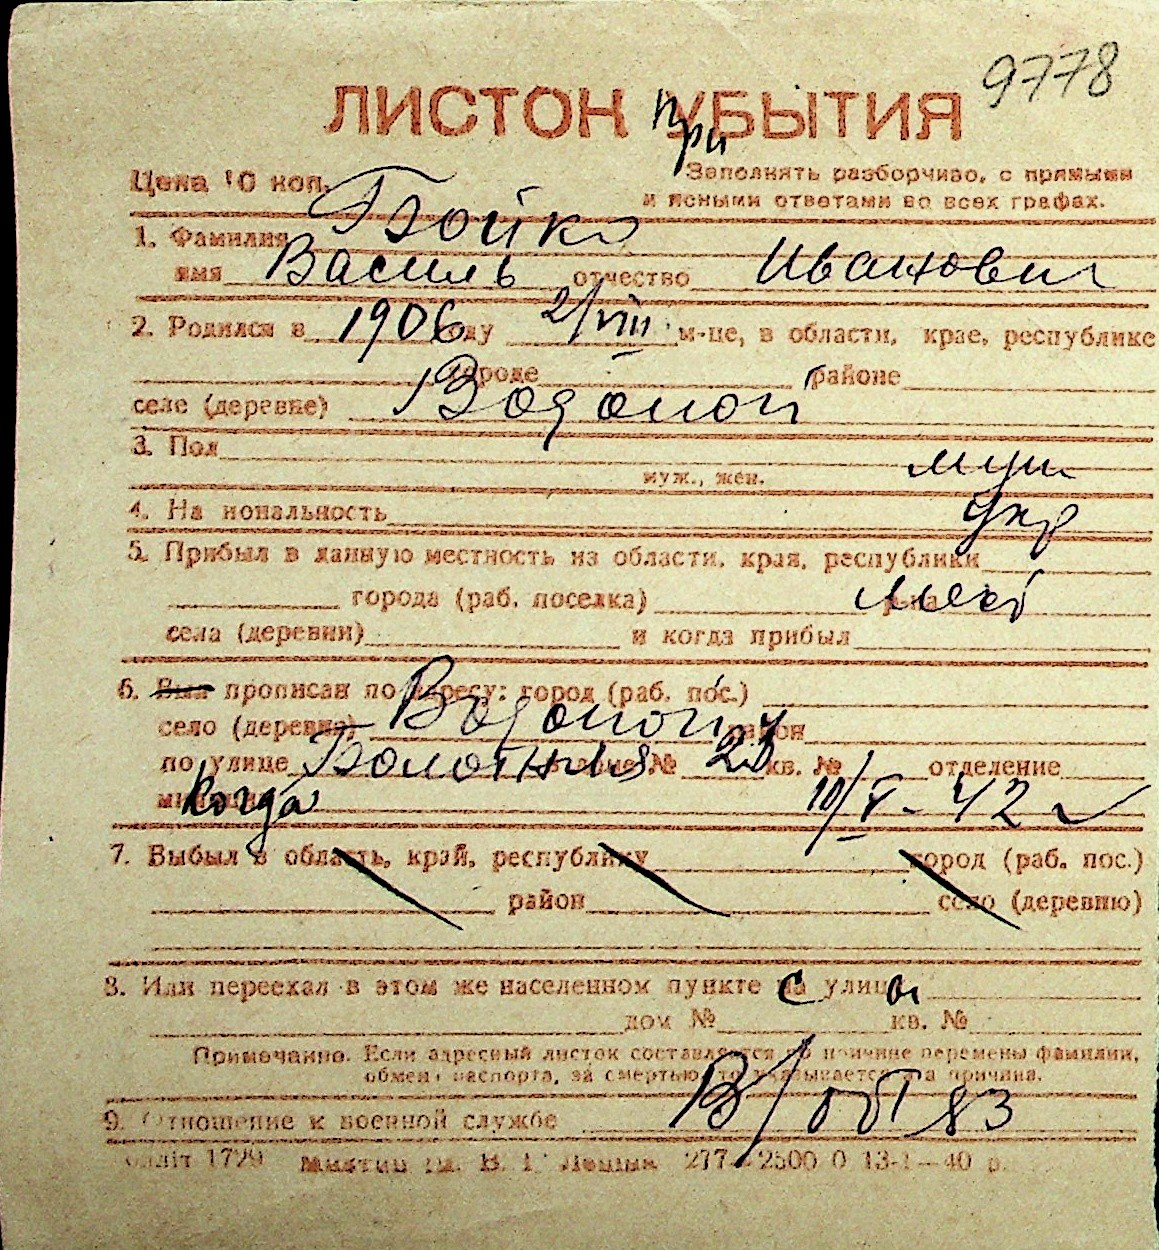 9778
ЛИСТОН УБЫТИЯ
при
Цена 10 коп. Заполнять разборчиво, с прямыми
и ясными ответами во всех графах.
1. Фамилия Бойко
имя Василь отчество Иванович
2. Родился в 1906 году 2/VIII м-це, в области, крае, республике
городе районе
селе (деревне) Водопой
3. Пол муж
муж., жен.
4. На иональность укр
5. Прибыл в данную местность из области, края, республики
города (раб. поселка) р-на
села (деревни) и когда прибыл
6. Был прописан по адресу: город (раб. пос.)
село (деревня) Водопой район
по улице Болотная № кв. № отделение
когда 10/V-42 г
7. Выбыл в область, край, республику город (раб. пос.)
район село (деревню)
8. Или переехал в этом же населенном пункте на с улицы
дом № кв. №
Примечание. Если адресный листок составляется по причине перемены фамилии,
обмена паспорта, за смертью, то указывается эта причина.
9. Отношение к военной службе В/обт 83
1729 277—2500 0 13-1—40 р.